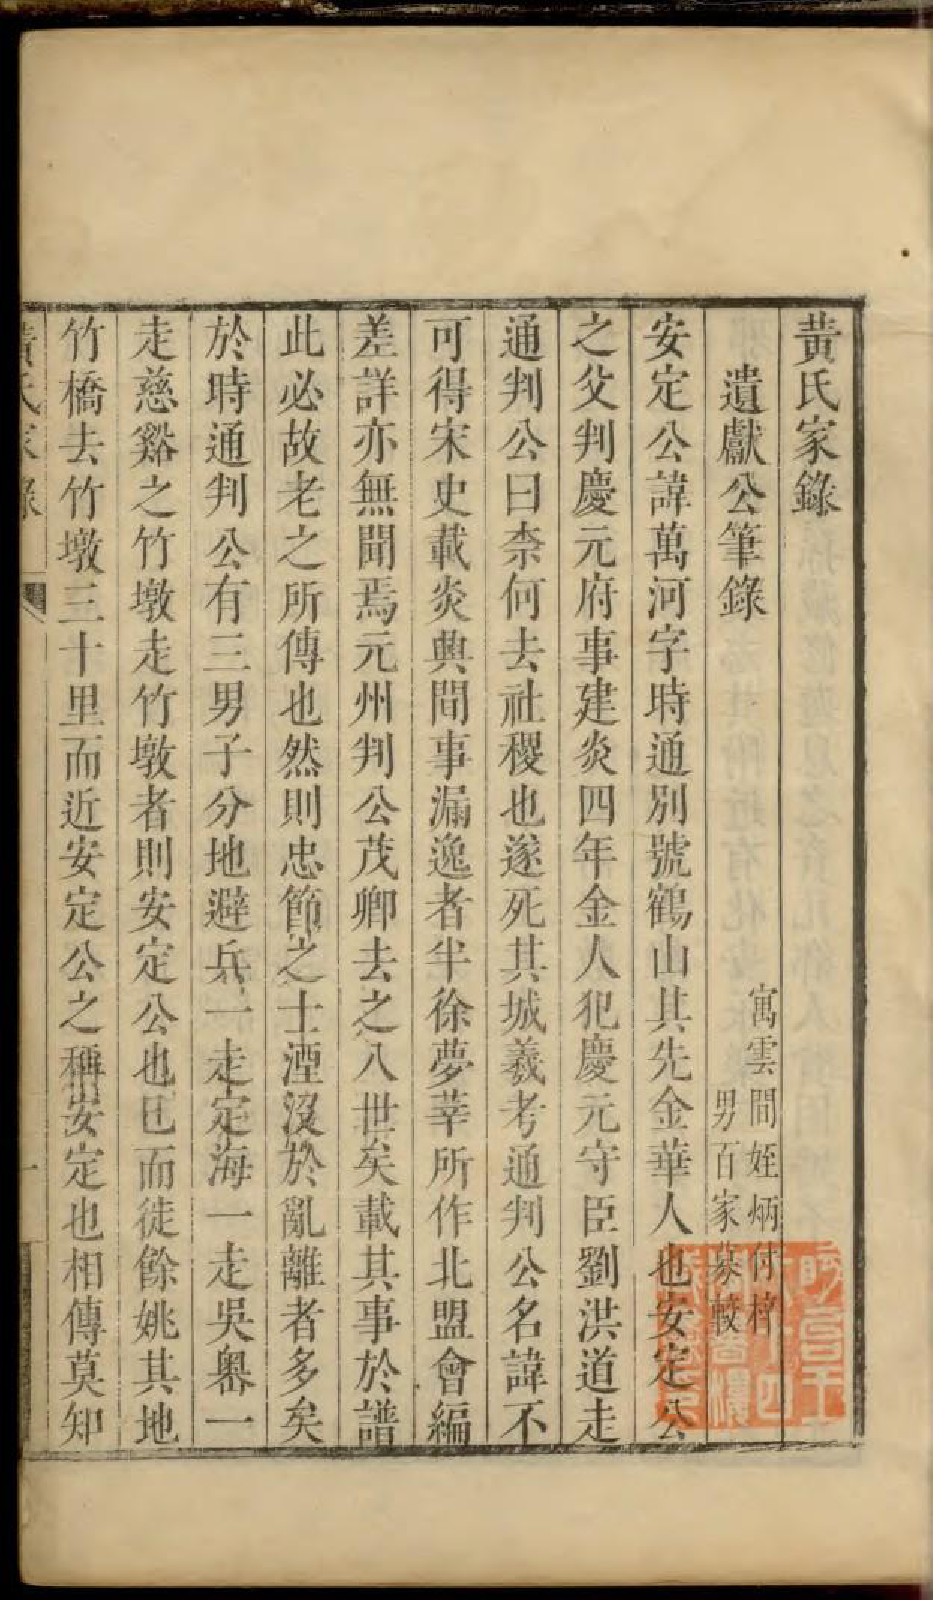 黃氏家錄
遺獻公筆錄
寓雲間姪炳付梓
男百家纂較
安定公諱萬河字時通別號鶴山其先金華人也安定公
之父判慶元府事建炎四年金人犯慶元守臣劉洪道走
通判公曰柰何去社稷也遂死其城羲考通判公名諱不
可得宋史載炎興間事漏逸者半徐夢莘所作北盟會編
差詳亦無聞焉元州判公茂卿去之八世矣載其事於譜
此必故老之所傳也然則忠節之士湮沒於亂離者多矣
於時通判公有三男子分地避兵一走定海一走吳奧一
走慈谿之竹墩走竹墩者則安定公也已而徙餘姚其地
竹橋去竹墩三十里而近安定公之稱安定也相傳莫知
黃氏家錄
一